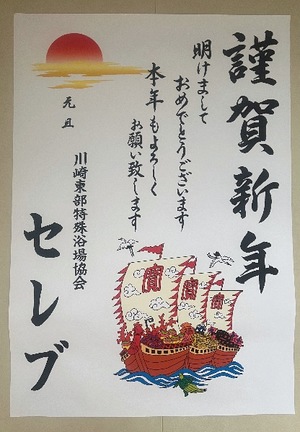 謹賀新年
明けまして
おめでとうございます
本年もよろしく
お願い致します
元旦
川崎東部特殊浴場協会
セレブ
寶
寶
寶